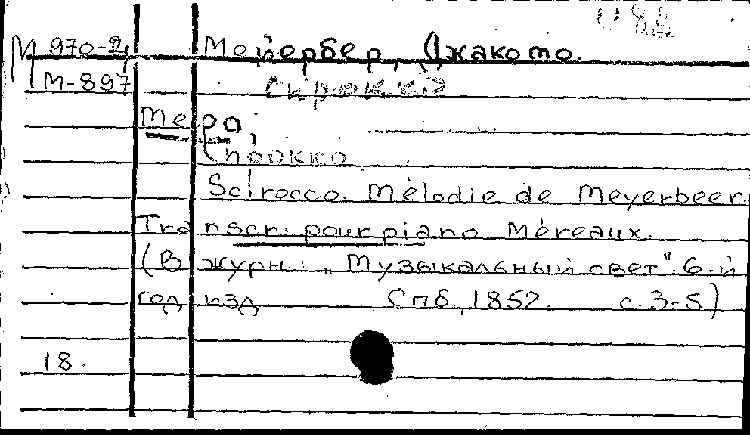 М 970-2 Мейербер, Джакомо.
М-897
Меро,
Сирокко
Scirocco. Mélodie de Meyerbeer.
Transcr. pour piano Méreaux.
(В журн.: „Музыкальный свет". 6-й
год изд Спб, 1852. с. 3-5)
18.